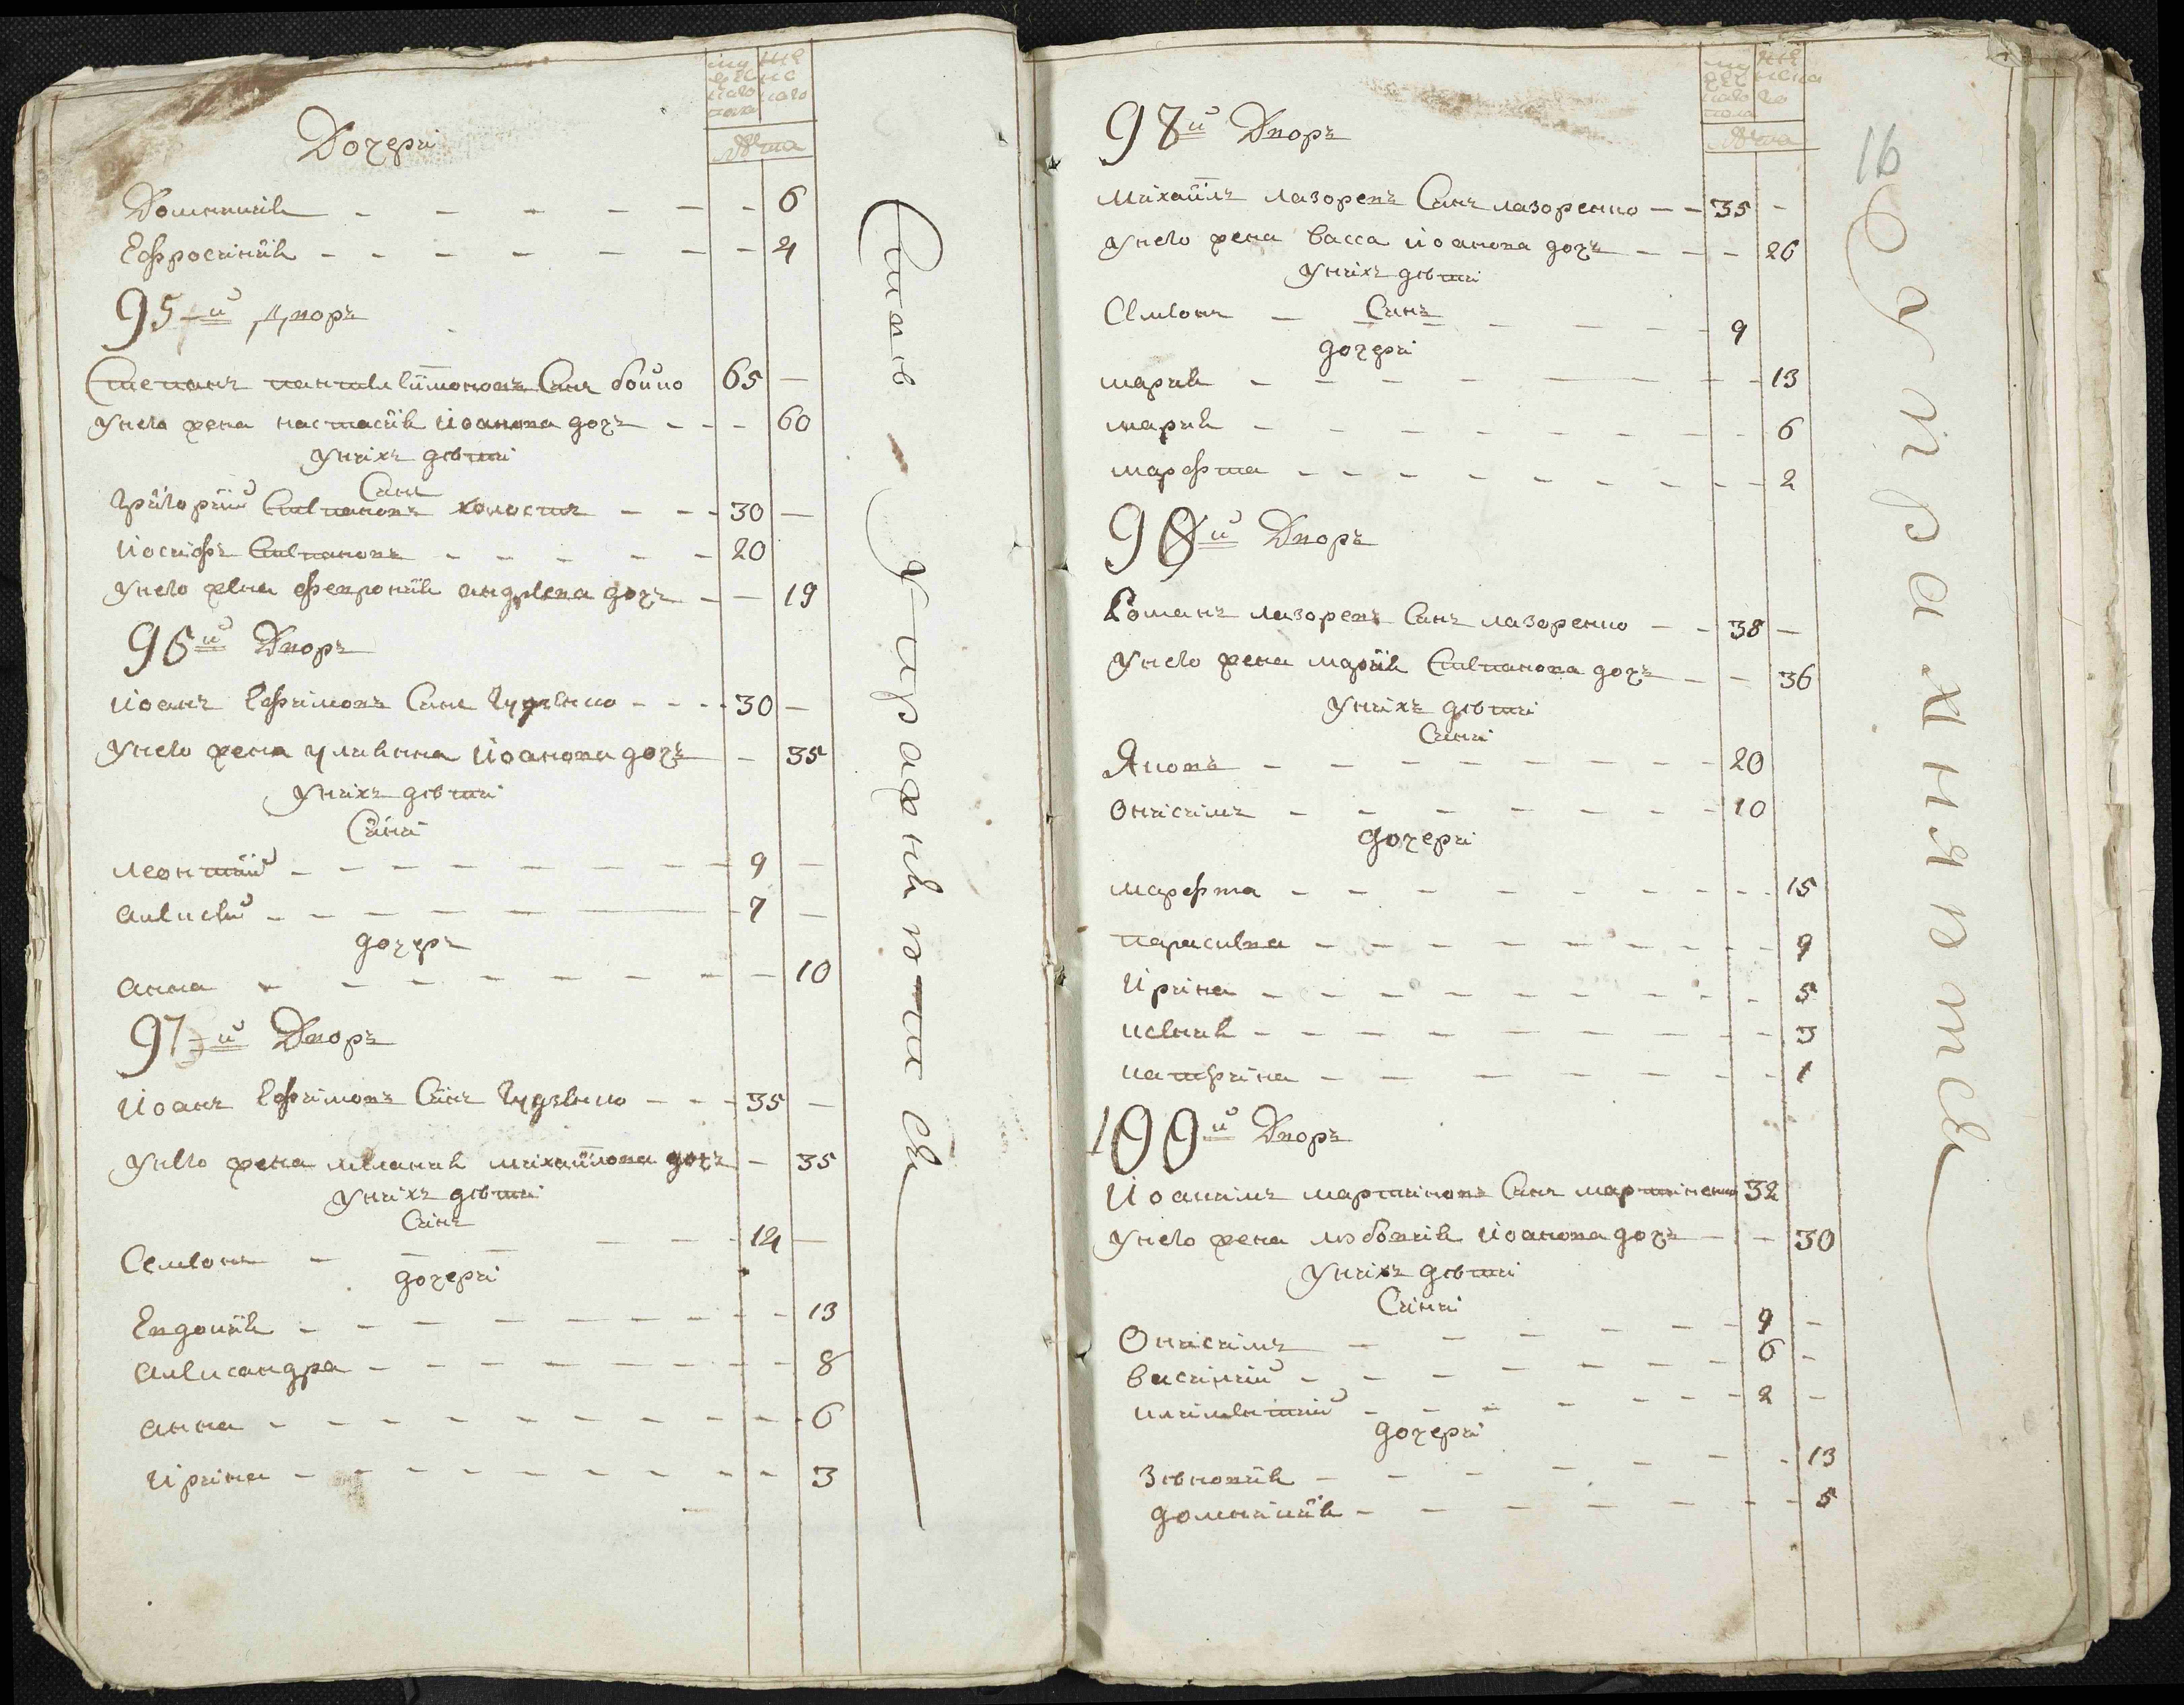 Дочери
Домникия 6
Ефросиния 4
95-й Дворъ
Степанъ Пантелеймоновъ Синъ бойко 65
Унего жена настасия Иоанова дочъ 60
Унихъ дѣти
Синъ
Григорий Степановъ холостъ 30
Иосифъ Степановъ 20
Унего жена феврония андреева дочъ 19
96й Дворъ
Иоанъ Ефимовъ Синъ 30
Унего жена улияна Иоанова дочъ 35
Унихъ дѣти
Сини
леонтий 9
алексей 7
дочеръ
анна 10
97-й Дворъ
Иоанъ Ефимовъ Синъ 35
Унего жена мелания михайлова дочъ 35
Унихъ дѣти
Синъ
Семеонъ 14
дочери
Евдокия 13
александра 8
анна 6
Ирина 3
мужеска пола
женска
лѣта
16
98й Дворъ
михаилъ лазоревъ Синъ лазоренко 35
Унего жена васса иоанова дочъ 26
Унихъ дѣти
Синъ
Семеонъ 9
дочери
мария 13
мария 6
марфта 2
99й Дворъ
Романъ лазоревъ Синъ лазоренко 38
Унего жена мария Степанова дочъ 36
Унихъ дѣти
Сини
Яковъ 20
онисимъ 10
дочери
марфта 15
параскева 9
Ирина 5
ксения 3
катрина 1
100й Дворъ
Иоакимъ мартиновъ Синъ мартиненко 32
Унего жена любовия Иоанова дочъ 30
Унихъ дѣти
Сини
Онисимъ 9
василий 6
климентий 2
дочери
Зѣновия 13
домникия 5